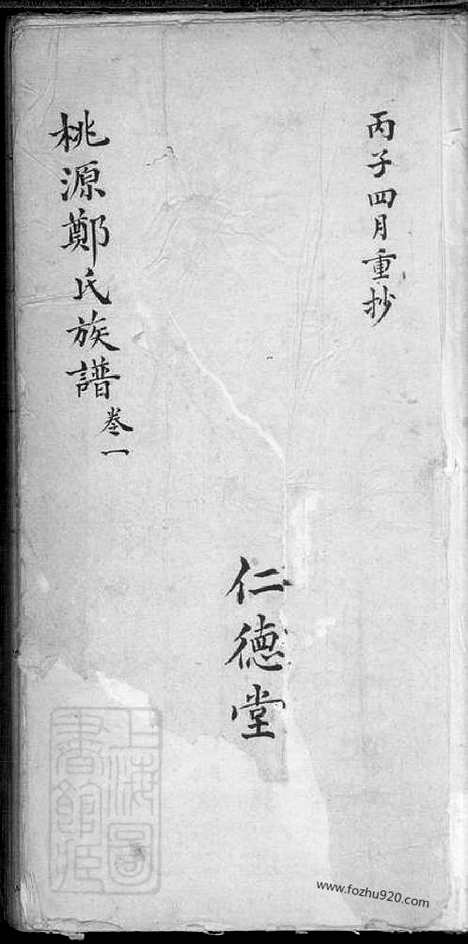 丙子四月重抄
仁德堂
桃源鄭氏族譜 卷一
上海圖書館藏
www.fozhu920.com